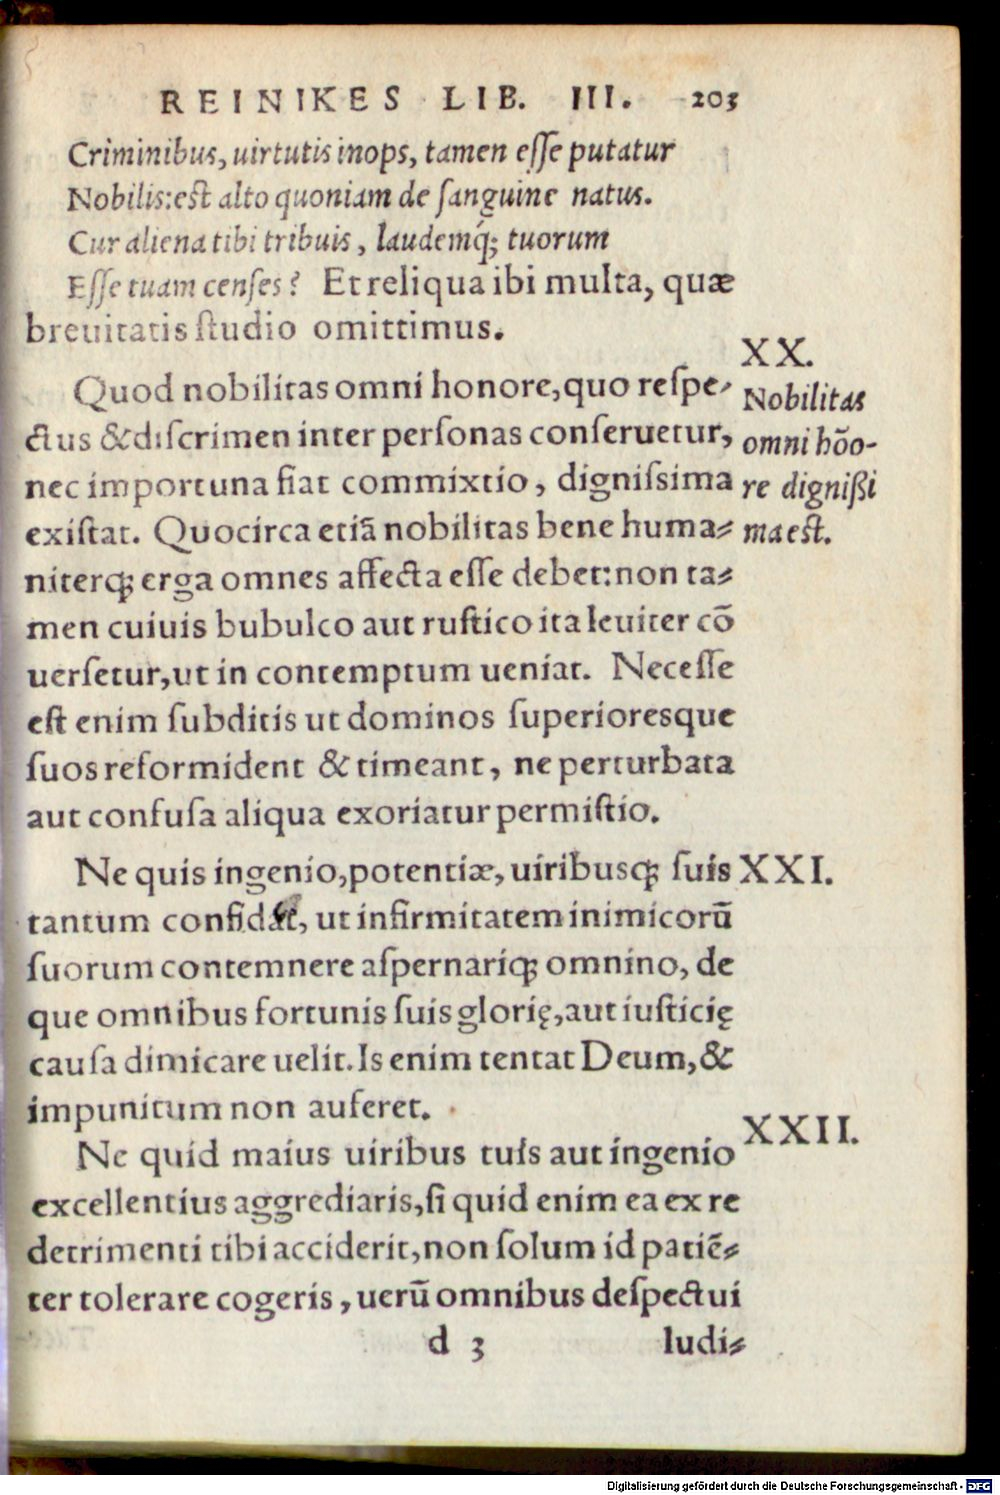 REINIKES LIB. III. 203
Criminibus, uirtutis inops, tamen eſſe putatur
Nobilis: eſt alto quoniam de ſanguine natus.
Cur aliena tibi tribuis, laudemq́; tuorum
Eſſe tuam cenſes? Et reliqua ibi multa, quæ
breuitatis ſtudio omittimus.
Quod nobilitas omni honore, quo reſpe-
ctus & diſcrimen inter perſonas conſeruetur,
nec importuna fiat commixtio, digniſsima
exiſtat. Quocirca etiã nobilitas bene huma-
niterq; erga omnes affecta eſſe debet: non ta-
men cuiuis bubulco aut ruſtico ita leuiter cõ
uerſetur, ut in contemptum ueniat. Neceſſe
eſt enim ſubditis ut dominos ſuperioresque
ſuos reformident & timeant, ne perturbata
aut confuſa aliqua exoriatur permiſtio.
XX.
Nobilitas
omni hõo-
re digniſſi
ma eſt.
Ne quis ingenio, potentiæ, uiribusq; ſuis
XXI.
tantum confidat, ut infirmitatem inimicorũ
ſuorum contemnere aſpernariq; omnino, de
que omnibus fortunis ſuis glorię, aut iuſticię
cauſa dimicare uelit. Is enim tentat Deum, &
impunitum non auferet.
XXII.
Ne quid maius uiribus tuis aut ingenio
excellentius aggrediaris, ſi quid enim ea ex re
detrimenti tibi acciderit, non ſolum id patiẽ-
ter tolerare cogeris, uerũ omnibus deſpectui
d 3 ludi-
Digitalisierung gefördert durch die Deutsche Forschungsgemeinschaft - DFG